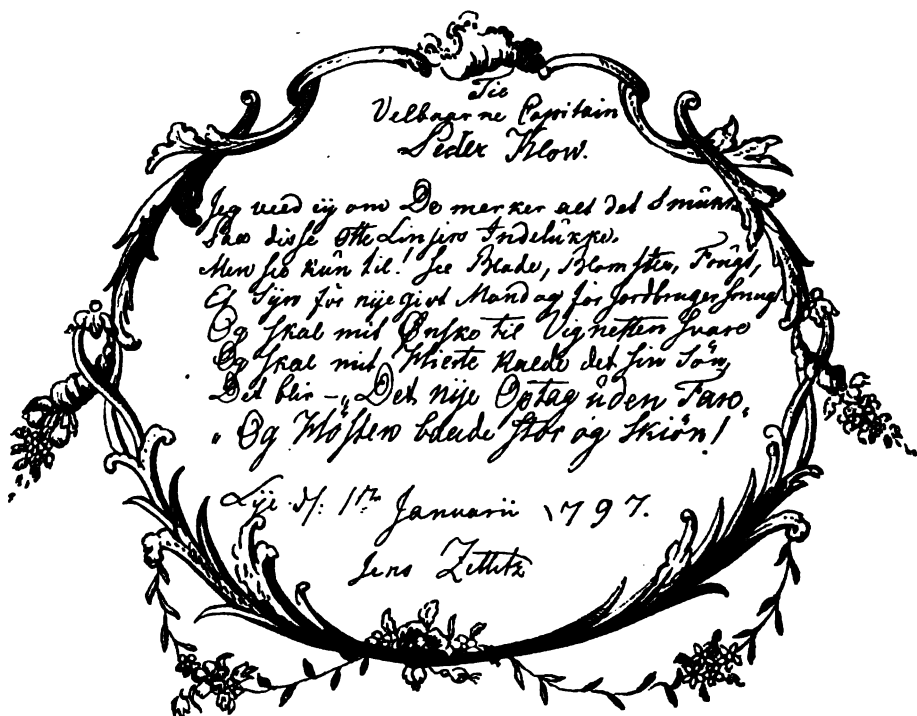 Til
Velbaarne Capitain
Peder Klow.
Jeg veed ey om De merker alt det Smukke
Saa disse otte Linjers Indelukke.
Men see kun til! See Blade, Blomster, Frugt,
Et Syn for nije givt Mand og for Jordbruger smugt
Og skal mit Ønske til Vignetten svare
Og skal mit Hierte kalde det sin Søn,
Det blir – „Det nije Optag uden Fare
„Og Høsten baade stor og skiøn!“
Lije d. 1ste Januarii 1797.
Jens Zetlitz